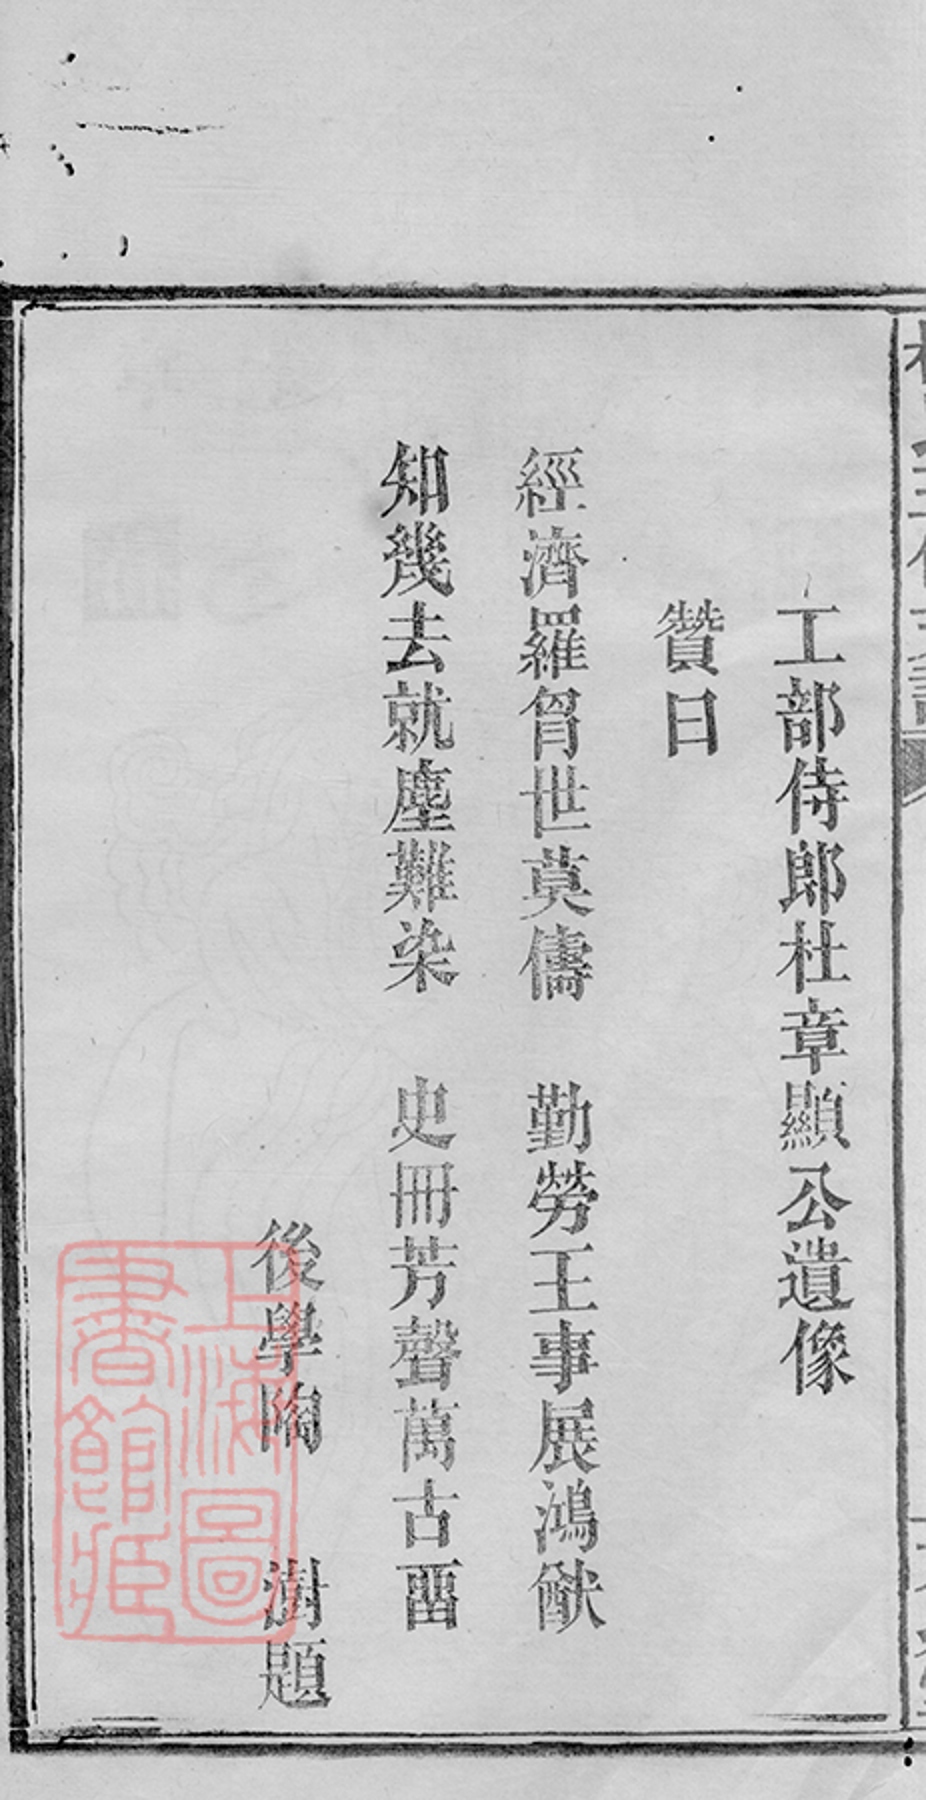 工部侍郎杜章顯公遺像
贊曰
經濟羅胷世莫儔　勤勞王事展鴻猷
知幾去就塵難染　史冊芳聲萬古畱
後學陶　澍題
上海圖書館藏